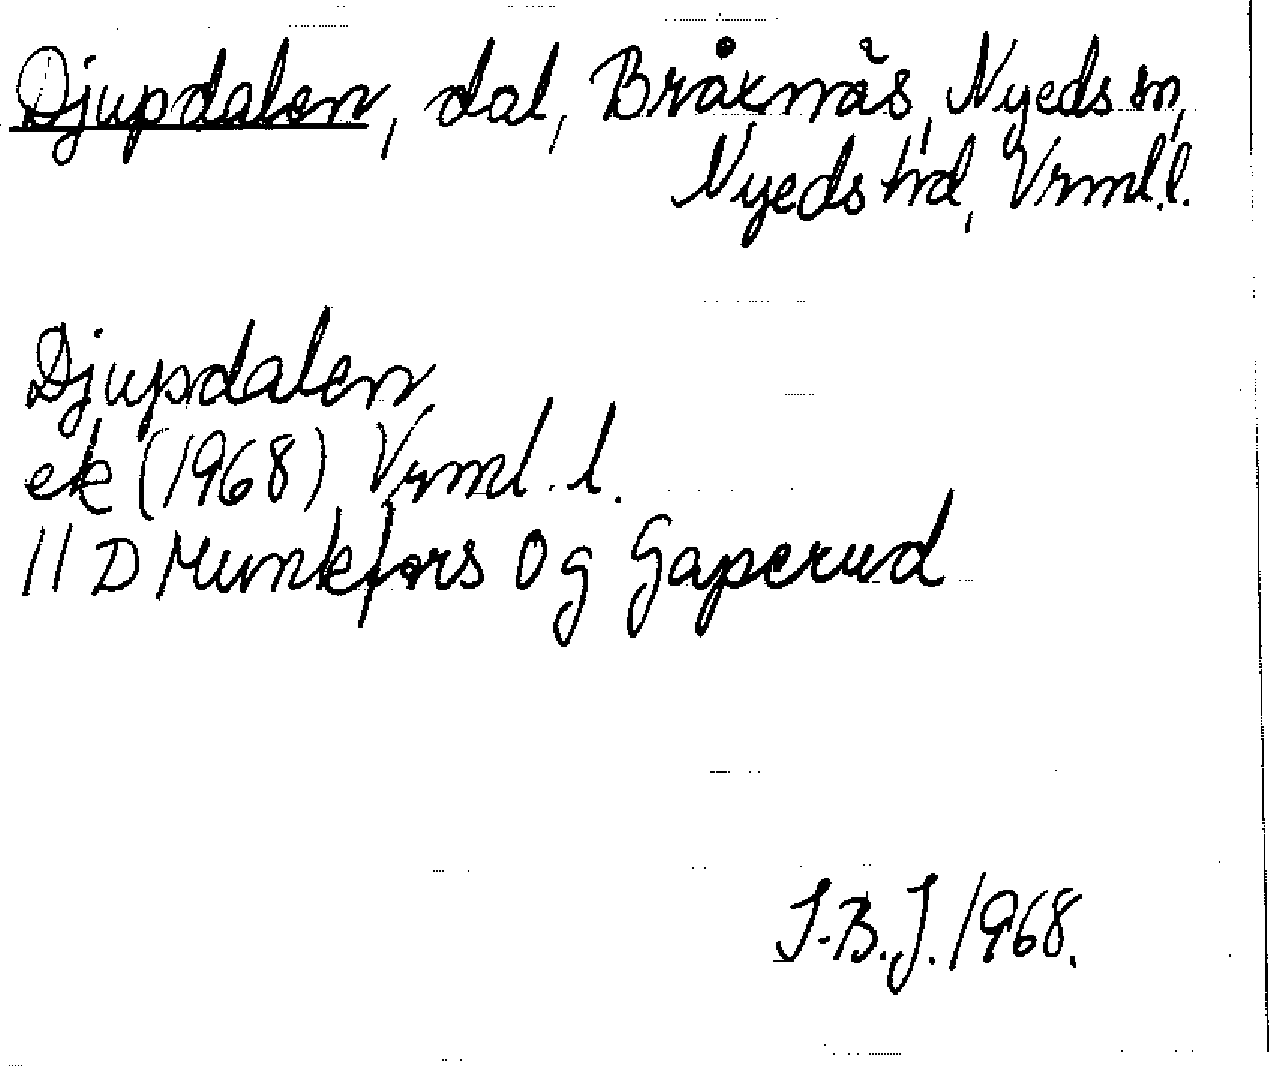 Djupdalen, dal, Bråxnäs, Nyeds sn,
Nyeds hd, Vrml.l.
Djupdalen
ek (1968) Vrml. l.
11 D Munkfors 0 g Gaperud
I-B.J. 1968.